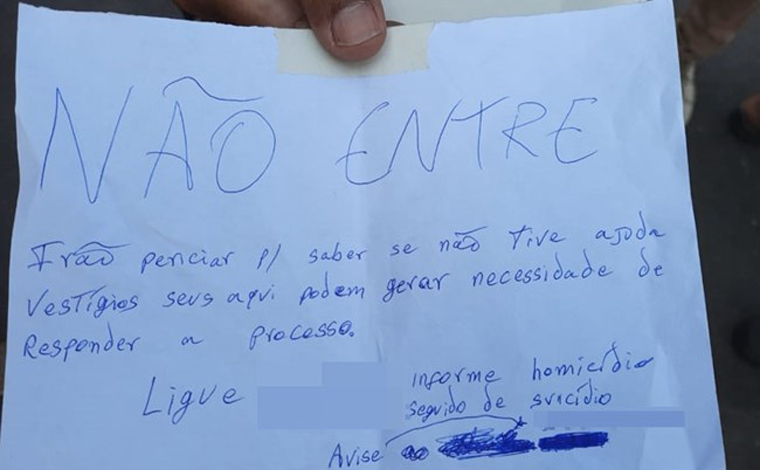 NÃO ENTRE
Irão periciar p/ saber se não tive ajuda
Vestígios seus aqui podem gerar necessidade de
Responder a processo.
Ligue
informe homicídio
seguido de suicídio
Avise